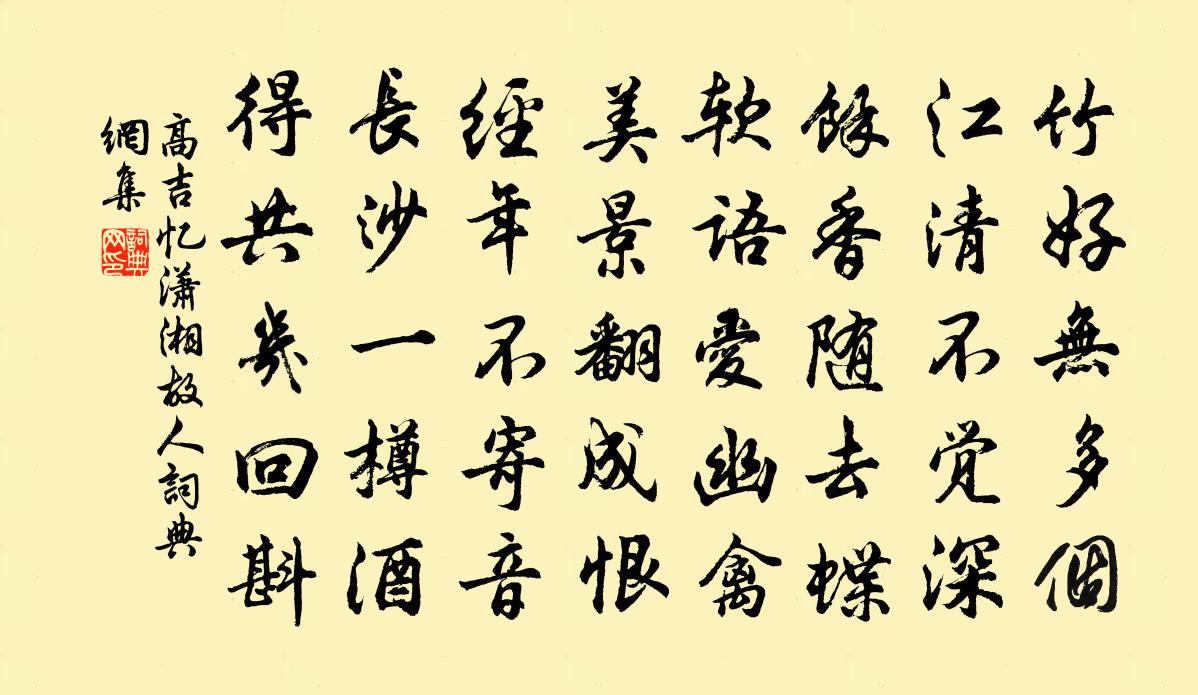 竹好無多個
江清不觉深
餘香随去蝶
软語愛幽禽
美景翻成恨
經年不寄音
長沙一樽酒
得共幾回斟
高吉忆瀟湘故人詞典
網集
詞典
网印